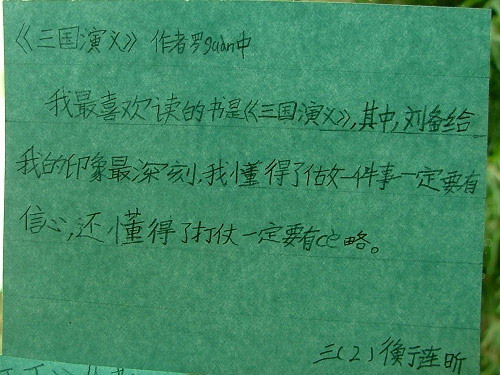 《三国演义》 作者罗guàn中
我最喜欢读的书是《三国演义》,其中,刘备给
我的印象最深刻,我懂得了做一件事一定要有
信心,还懂得了打仗一定要有cè略。
三(2)